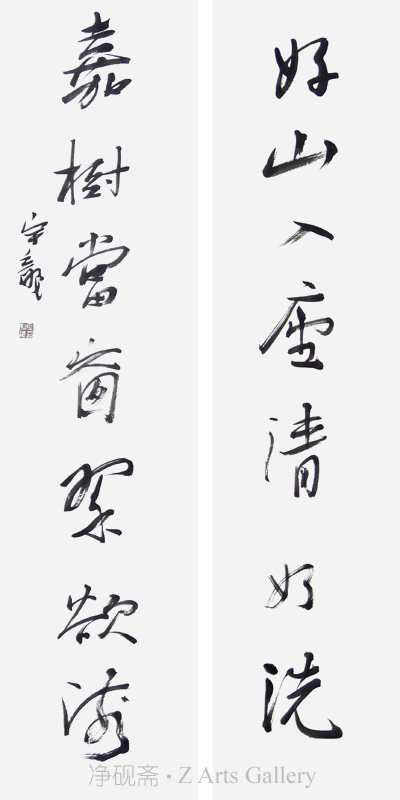 好山入座清如洗
嘉樹當窗翠欲流
净砚斋 • Z Arts Gallery